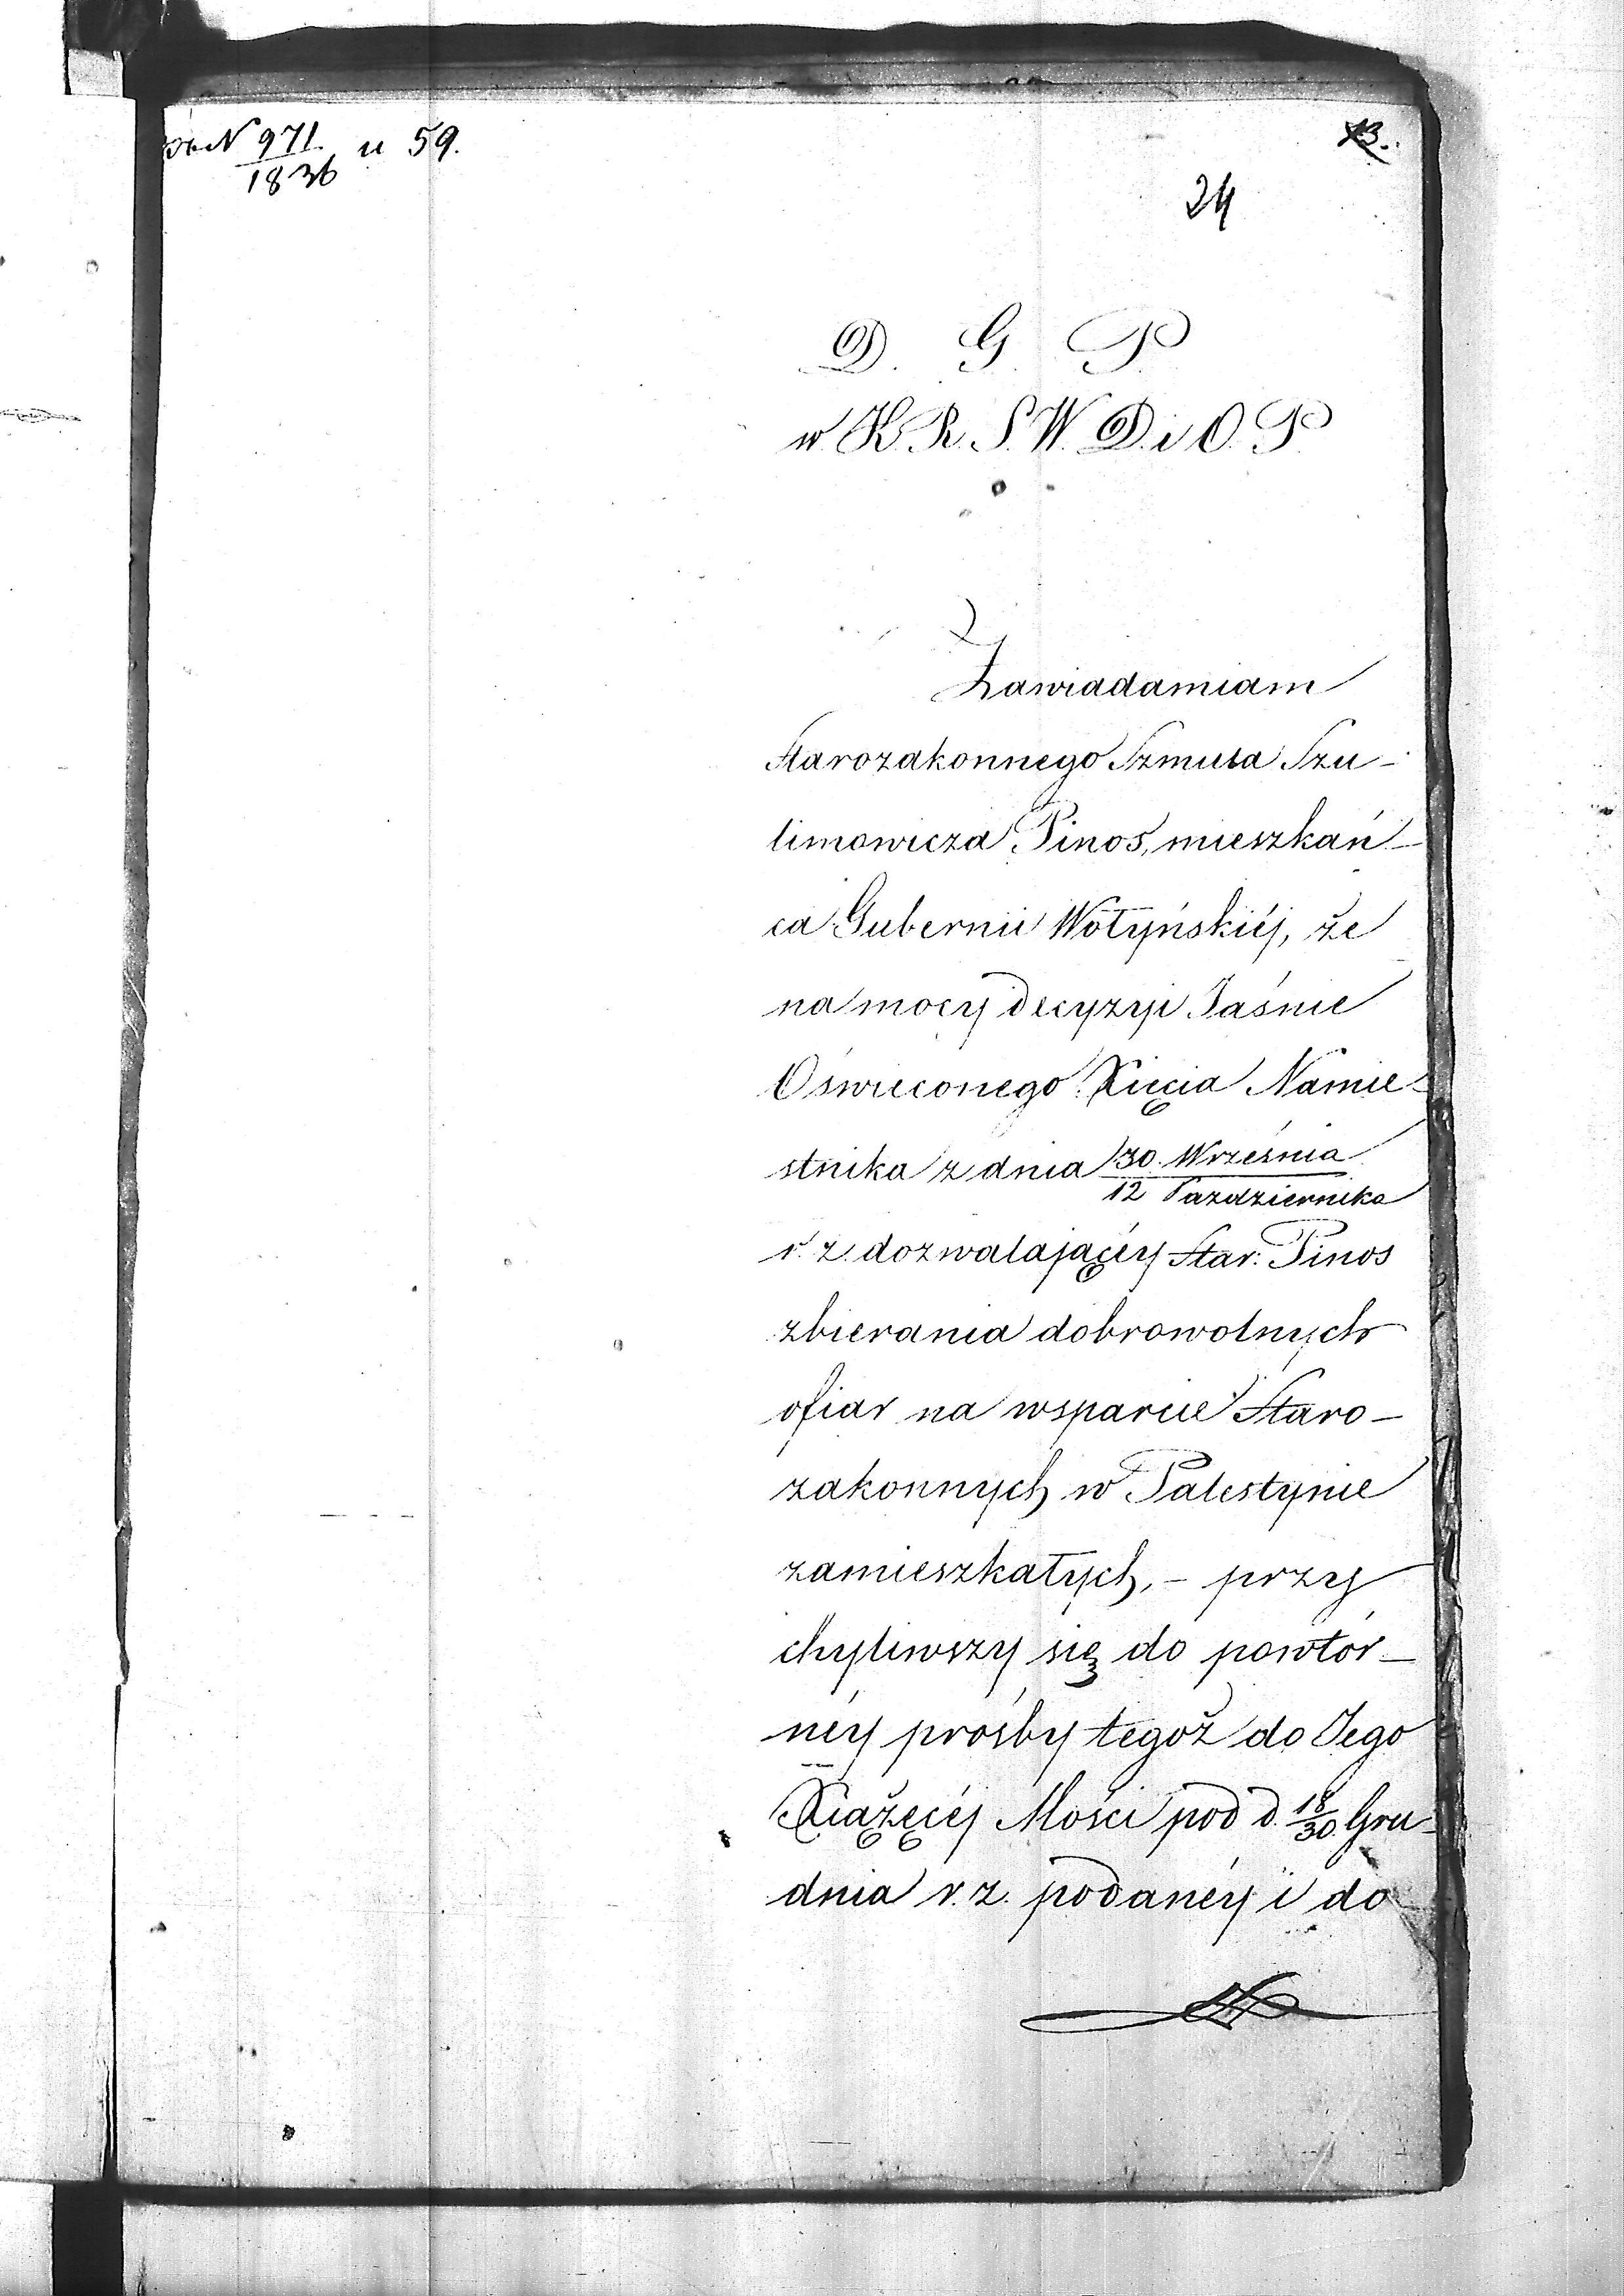 N 971/1836 u 59.
13.
24
D. G. P.
w K. R. S. W. D. i O. P.
Zawiadamiam
Starozakonnego Szmula Szu-
limowicza Pinos, mieszkań-
ca Gubernii Wołyńskiéj, że
na mocy decyzyi Jaśnie
Oświeconego Xięcia Namie-
stnika z dnia 30. Września / 12 Października
r. z. dozwalającéy Star: Pinos
zbierania dobrowolnych
ofiar na wsparcie Staro-
zakonnych w Palestynie
zamieszkałych, - przy
chyliwszy się do powtór-
néy prośby tegoż do Jego
Xiążęcéj Mości pod d. 18/30. Gru-
dnia r. z. podanéy i do